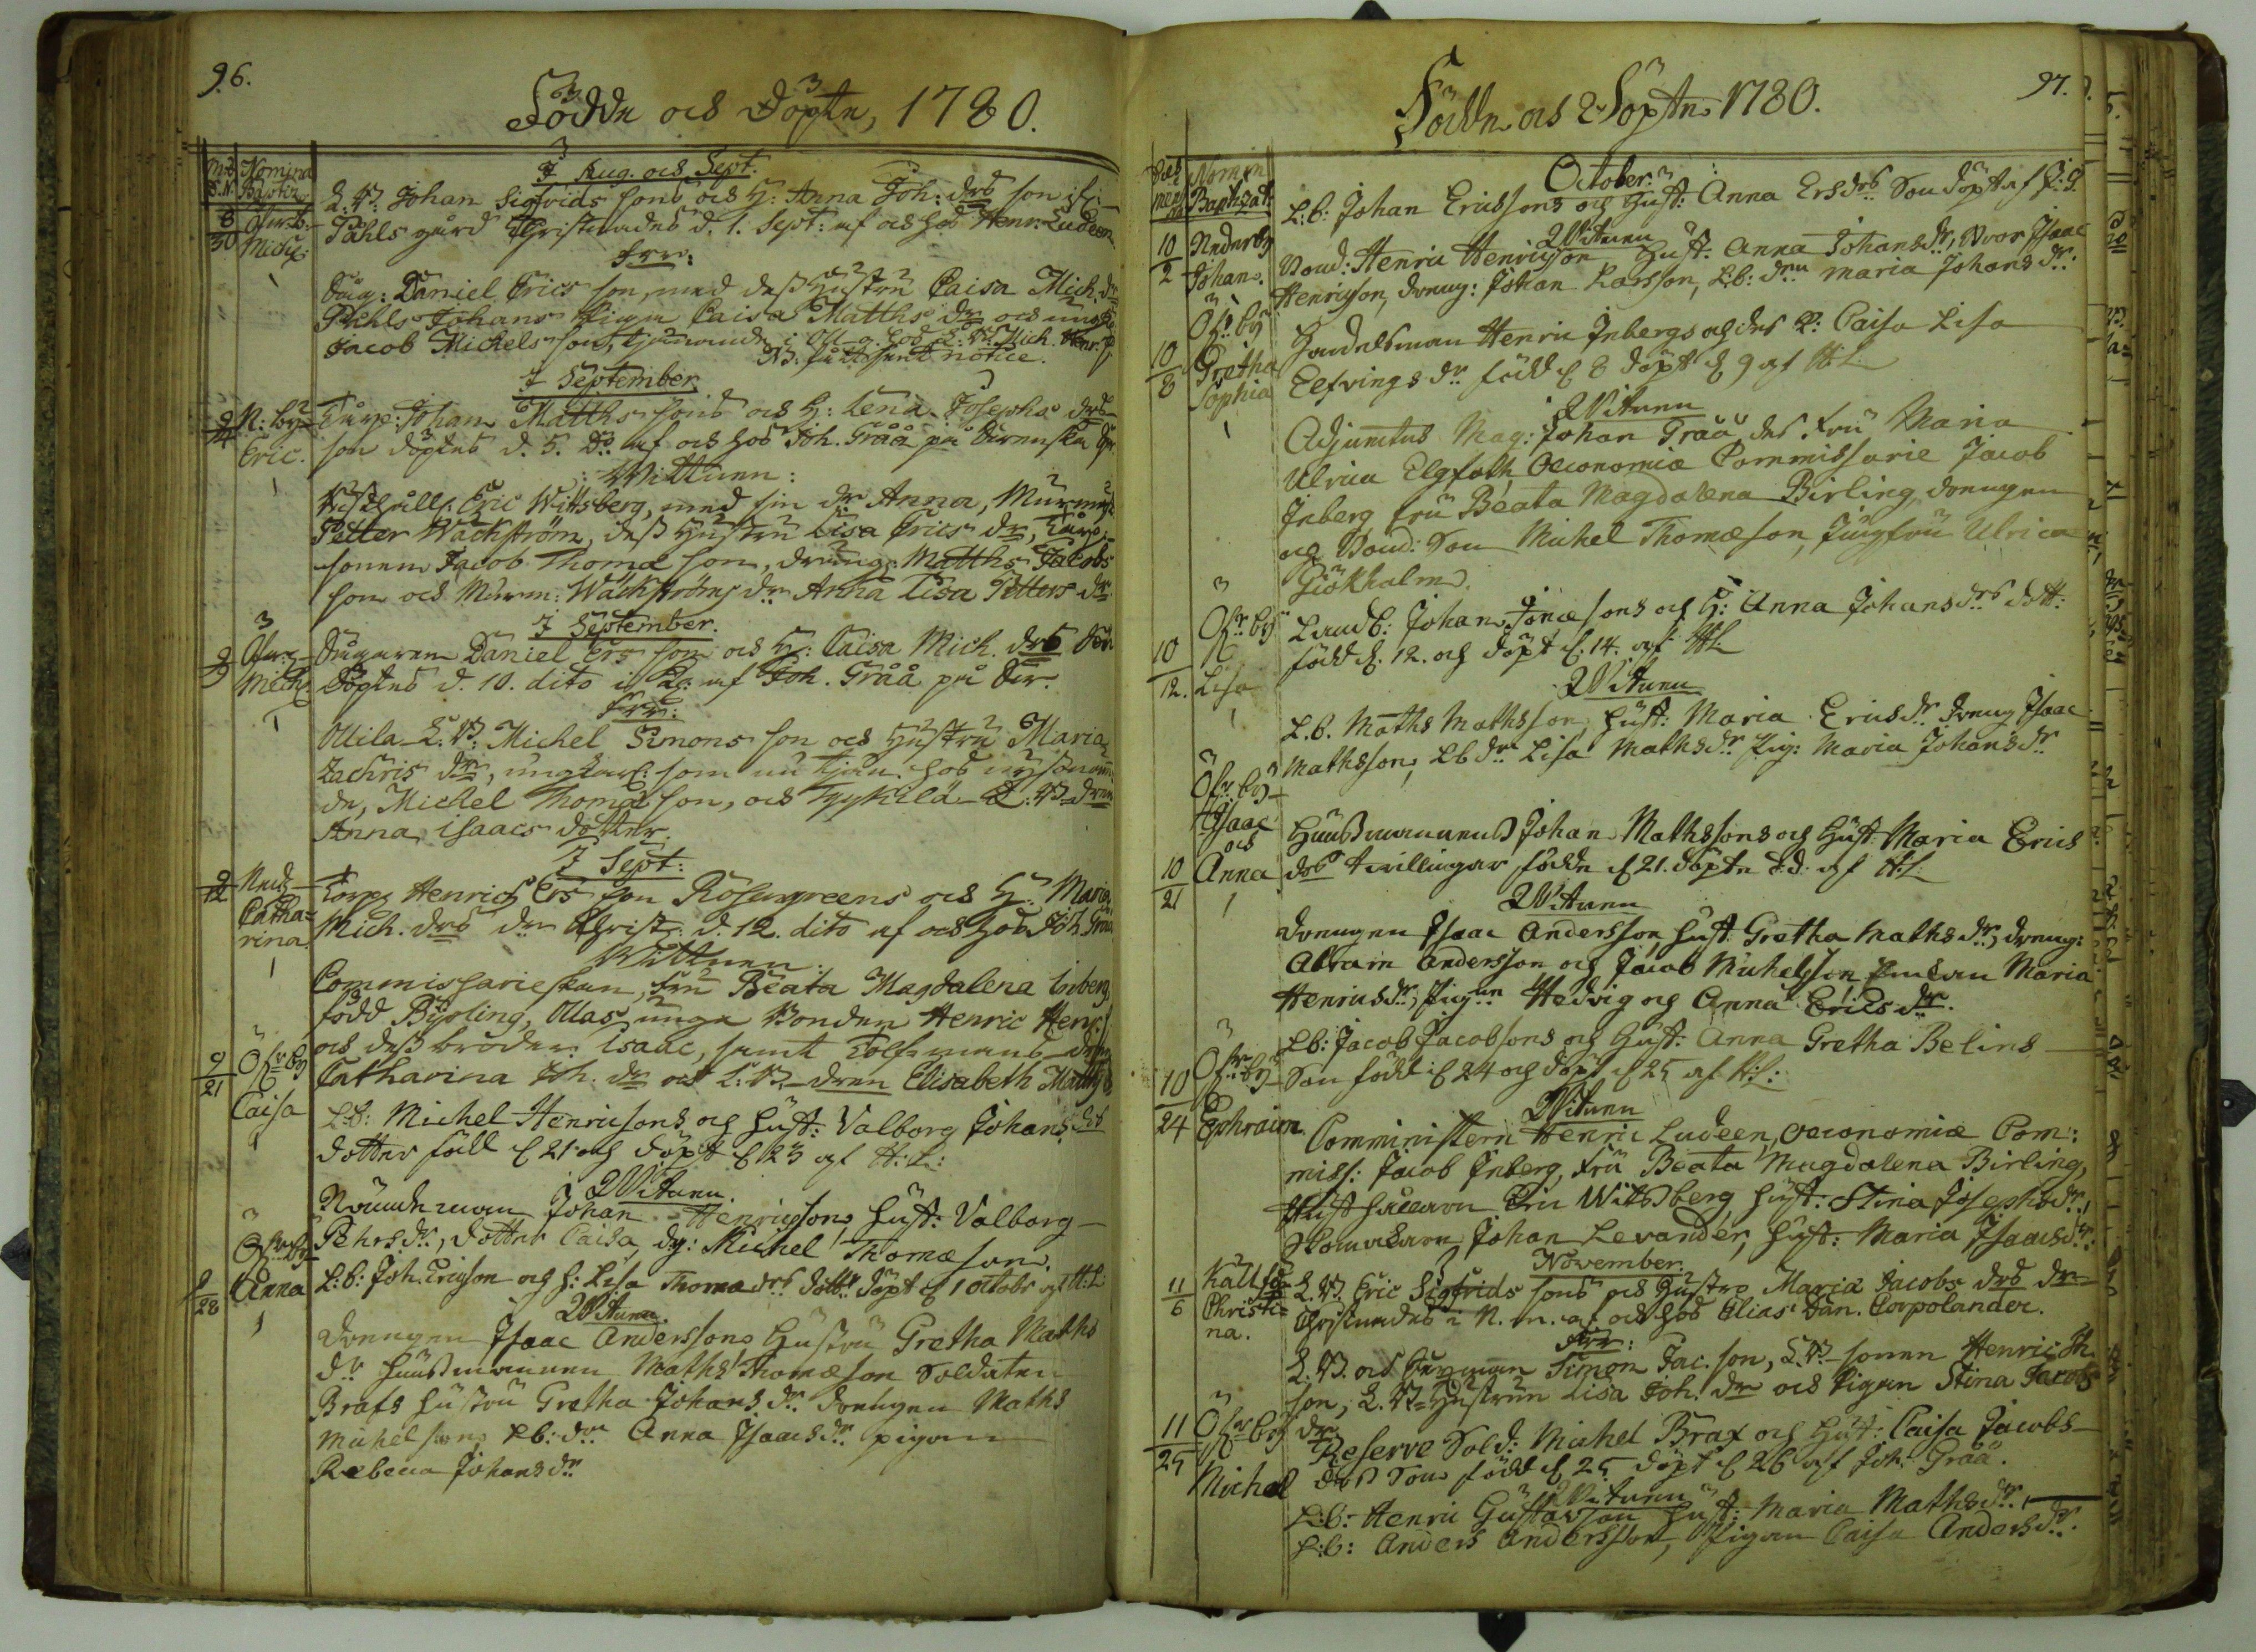 96.
Födde och Döpte, 1780.
Nomina
Baptiz.
J Aug. och Sept.
8/30
Mich:
L: B. Johan Sigfrids sons och H: Anna Joh: drs son
Påhls gård Christnades d. 1. Sept: af och hos Henr: Ludeen.
Daniel Erics son, med dess Hustru Caisa Mich. dr
Påhls Johans Pigan Caisa Matths dr och
Jacob Michels son, tjenande i
NB. notice.
J September
9/4
N: by
Eric.
Johan Matths sons och H: Lena Josephs drs
son döptes d. 5. Do af och hos Joh. Gråå på
Wittnen:
Eric Wittsberg, med sin dr Anna, Murmest.
Petter Wäckström, dess Hustru Lisa Erics dr,
sonen Jacob Thomæ son, dräng: Matths Jacobs
son och Murm: Wäckströms dr Anna Lisa Petters dr
J September.
9/9
Mich:
Daniel Ers son och H: Caisa Mich. drs Son
Döptes d. 10. dito af Joh. Gråå på
L: B: Michel Simons son och Hustru Maria
Zachris dr, ungkarl: som nu tjen. hos
de, Michel Thomæ son, och L: B. dren
Anna isaacs dotter.
J Sept:
9/12
Catha=
rina
Henrich Ers son Rosengreens och H: Maria
Mich. drs dr Christ: d. 12. dito af och hos Joh. Gråå
Wittnen.
Commissarieskan, fru Beata Magdalena Inberg,
född Byrling, Ollas unga Bonden Henric Henr. s.
och dess broder Isaac, samt
Catharina Joh. dr och L: B. dren Elisabeth Matths
9/21
Öfr by
Caisa
Lb: Michel Henricsons och Hust: Valborg Johans drs
dotter född d 21 och döpt d 23 af H: L:
Witnen.
Nämndeman Johan Henricson, Hust: Valborg
Pehrs dr, dotter Caisa, dr: Michel Thomæ son.
9/28
Öfr by
Anna
L: b: Joh: Ericson och H: Lisa Thomæ drs dottr döpt d 1 octobr af H: L:
Witnen.
Drengen Isaac Anderssons Hustru Gretha Maths
dr Huusmannen Maths Thomæson Soldaten
Brafs Hustru Gretha Johans dr drengen Maths
Michelson, Lb: dr Anna Isaacs dr pigan
Rebecca Johans dr
97.
Födde och Döpte 1780.
Nomin
Baptizat
October.
10/2
Nederby
Johan.
L: b: Johan Ericssons och Hust: Anna Ersdrs Son döpt af J: G.
Witnen
Bond: Henric Henricson, Hust: Anna Johansdr, Bror Isaac
Henricson, dreng: Johan Larsson, L: b: dren Maria Johansdr
10/8
Öfr by
Gretha
Sophia
Handelsman Henric Inbergs och des H: Caisa Lisa
Elfvings dr född d 8 döpt d 9 af H: L:
Witnen
Adjunctus Mag: Johan Gråå, des Fru Maria
Ulrica Elgfoth, Oeconomiæ Commissarie Jacob
Inberg, fru Beata Magdalena Birling, drengen
och Bond: Son Michel Thomæson, Jungfru Ulrica
Giökholm.
10/12.
Öfr by
Lisa
Landb: Johan Jonæsons och H: Anna Johansdrs dott:
född d. 12. och döpt d. 14. af H: L
Witnen
L. b. Maths Mathsson, Hust: Maria Ericsdr dreng Isaac
Mathsson, Lb dr Lisa Mathsdr Pig: Maria Johansdr
10/21
Öfr by
Isaac
och
Anna
Huusmannens Johan Mathssons och Hust: Maria Erics
drs twillingar födde d 21. döpte d. d. af H: L:
Witnen
drengen Isaac Andersson, Hust: Gretha Mathsdr, dreng:
Abram Andersson och Jacob Michelsson, Maria
Henricsdr, Pigan Hedvig och Anna Ericsdr.
10/24
Öfr by
Ephraim
Lb: Jacob Jacobsons och Hust: Anna Gretha Belins
Son född d 24 och döpt d 25 af H: L:
Witnen
Comministern Henric Ludeen, Oeconomiæ Com:
miss: Jacob Inberg, fru Beata Magdalena Birling,
Eric Wittsberg, Hust: Stina Josephsdr,
Skomakaren Johan Levander, Hust: Maria Isaacsdr.
November.
11/6
Christi=
na.
L. B. Eric Sigfrids sons och Hustru Maria Jacobs drs dr
Christnades i N. m. af och hos Elias Dan. Corpolander.
L. B. och Simon Jac. son, L. B. sonen Henric
son, L. B. Hustrun Lisa Joh. dr och Pigan Stina Jacobs
dr
11/25
Öfr by
Michel
Reserve Sold: Michel Braf och Hust: Caisa Jacobs
drs Son född d 25 döpt d 26 af Joh: Gråå.
Witnen
L: b: Henric Gustavson Hust: Maria Mathsdr.
L: b: Anders Andersson, Pigan Caisa Andersdr.